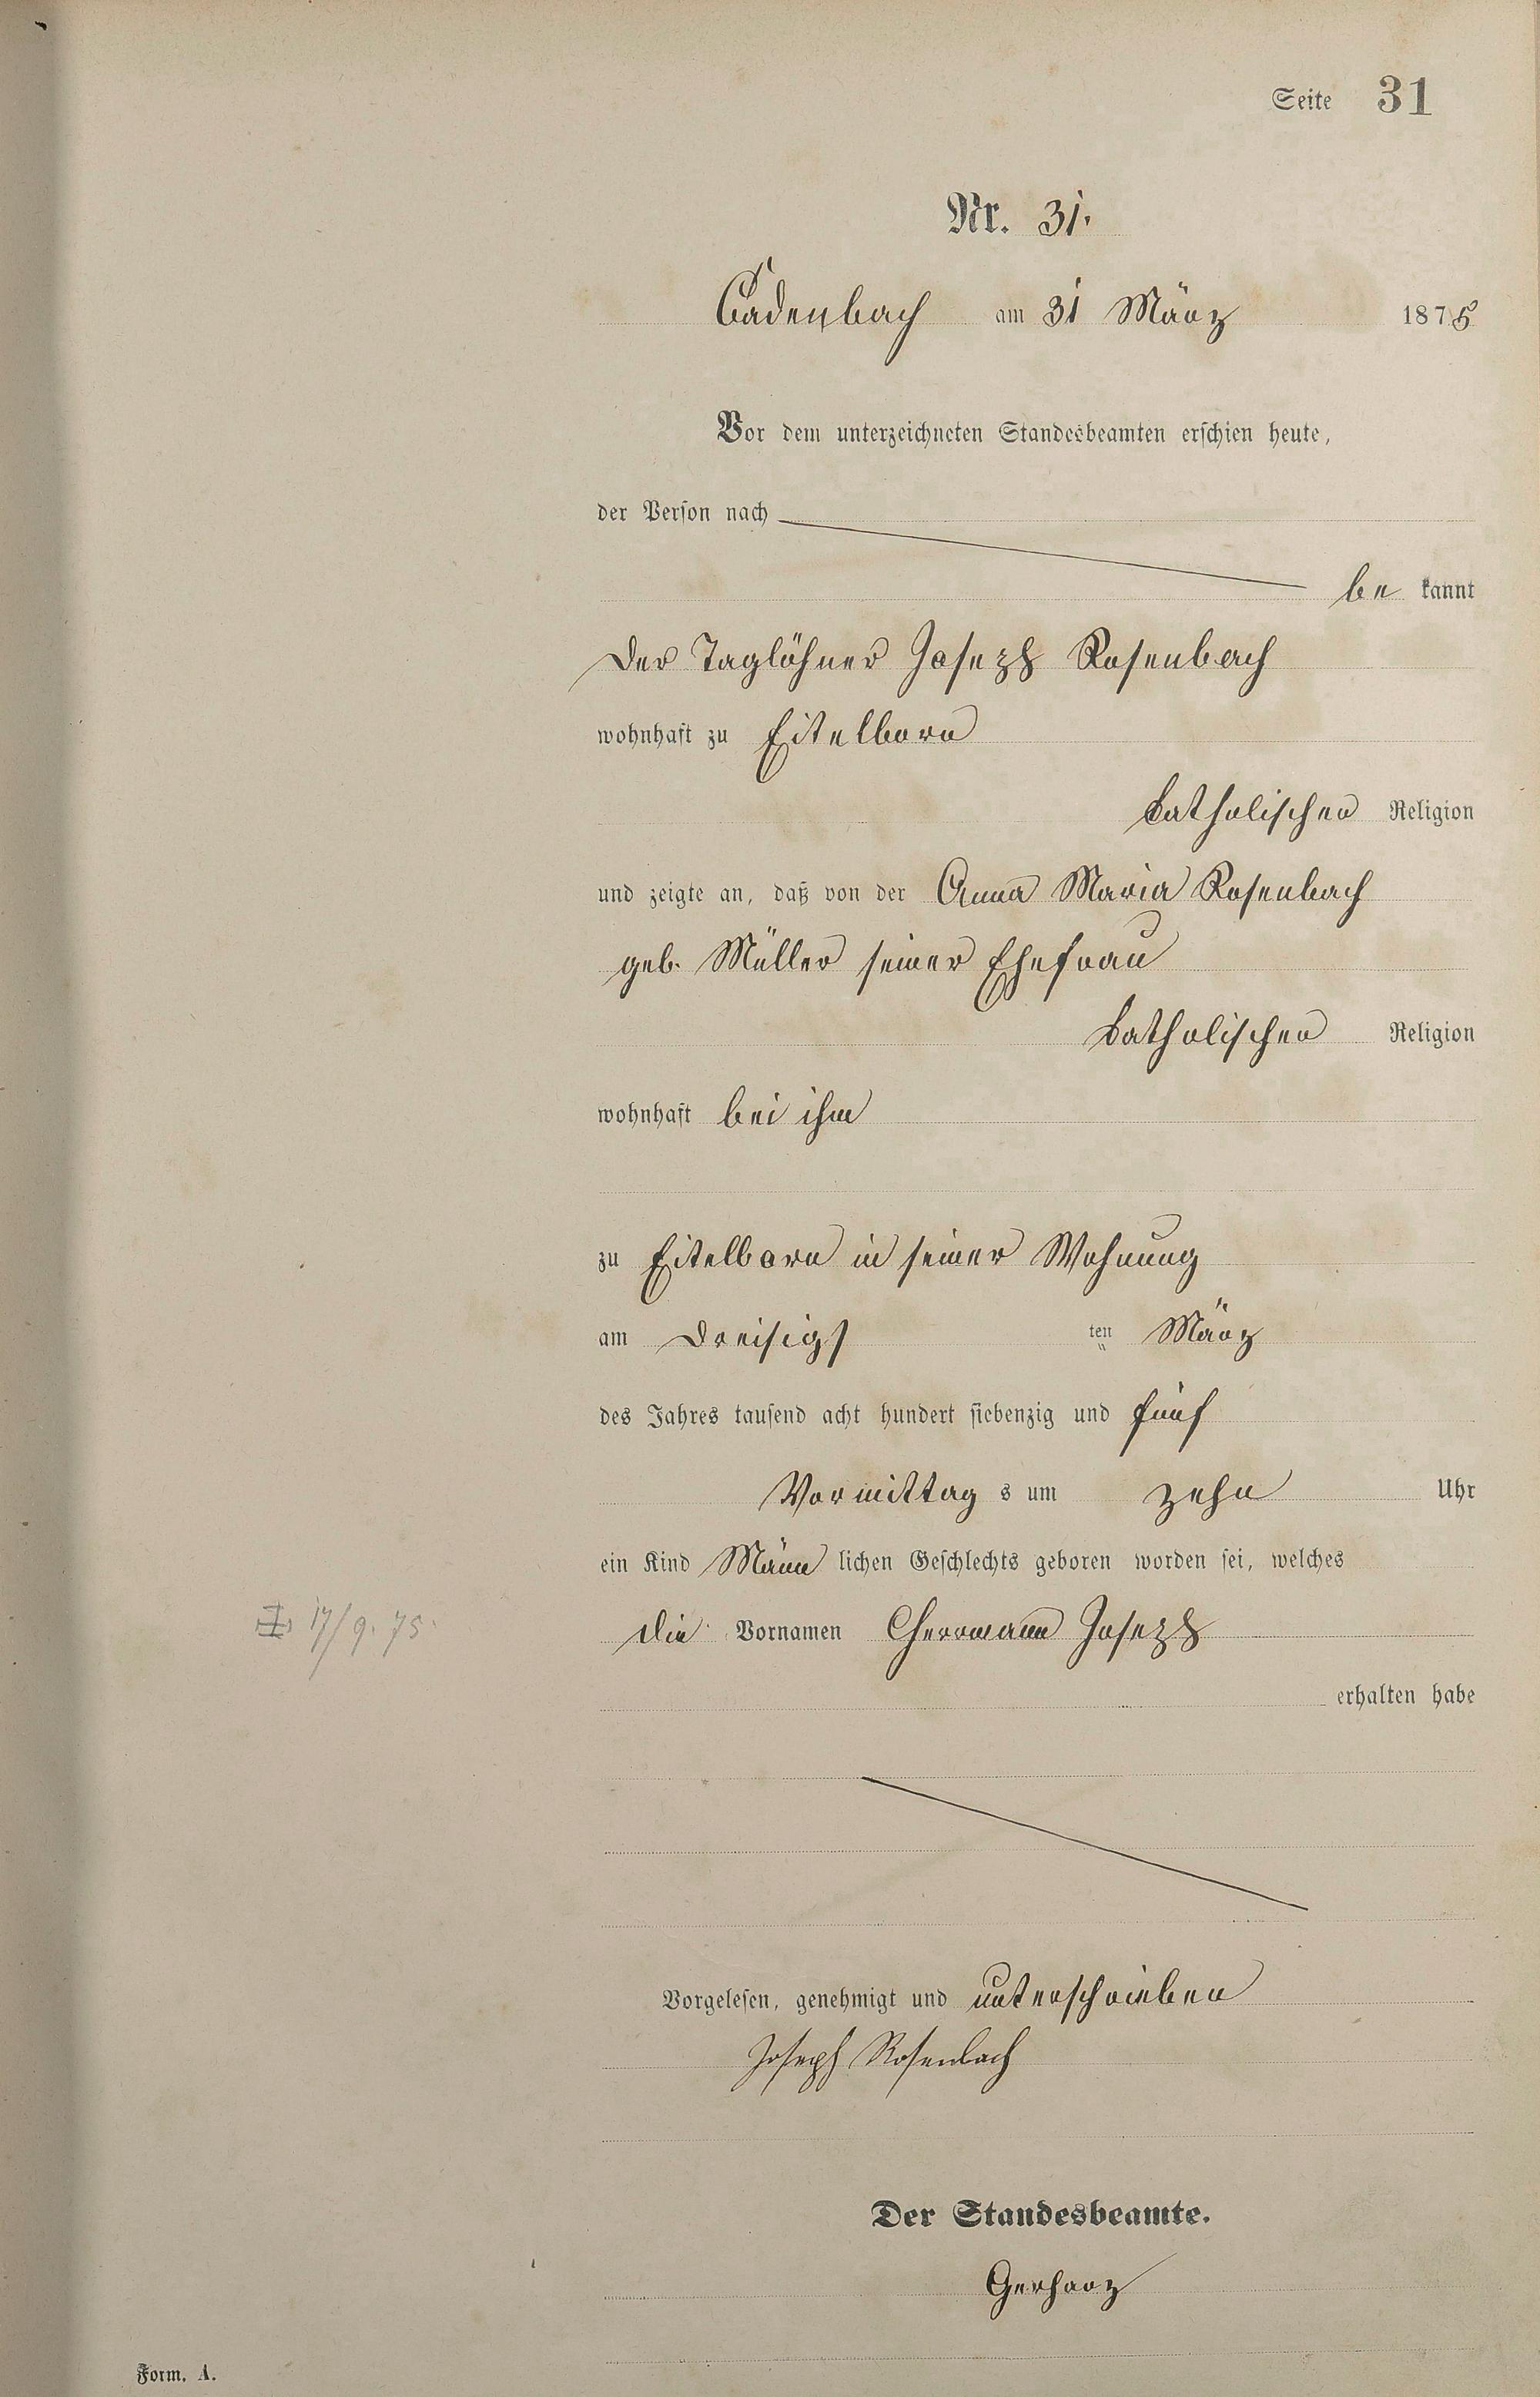 Seite 31
Nr. 31.
Cadenbach am 31 März 1875
Vor dem unterzeichneten Standesbeamten erschien heute,
der Person nach
be kannt
der Taglöhner Joseph Rosenbach
wohnhaft zu Eitelborn
katholischer Religion
und zeigte an, daß von der Anna Maria Rosenbach
geb. Müller seiner Ehefrau
katholischer Religion
wohnhaft bei ihm
zu Eitelborn in seiner Wohnung
am dreisigs ten März
des Jahres tausend acht hundert siebenzig und fünf
Vormittag s um zehn Uhr
ein Kind Männ lichen Geschlechts geboren worden sei, welches
17/9. 75.
die Vornamen Herrmann Joseph
erhalten habe
Vorgelesen, genehmigt und unterschrieben
Joseph Rosenbach
Der Standesbeamte.
Gerharz
Form. A.